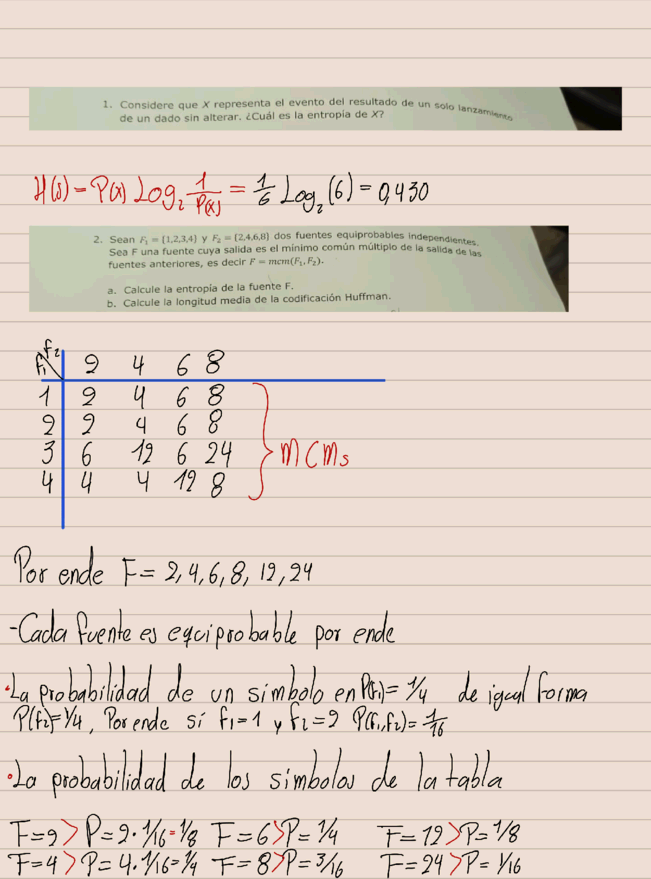 1. Considere que X representa el evento del resultado de un solo lanzamiento
de un dado sin alterar. ¿Cuál es la entropía de X?
H(s) = P(x) Log₂ 1/P(x) = 1/6 Log₂(6) = 0,430
2. Sean F₁ = {1,2,3,4} y F₂ = {2,4,6,8} dos fuentes equiprobables independientes.
Sea F una fuente cuya salida es el mínimo común múltiplo de la salida de las
fuentes anteriores, es decir F = mcm(F₁, F₂).
a. Calcule la entropía de la fuente F.
b. Calcule la longitud media de la codificación Huffman.
f₂
f₁ 2 4 6 8
1 2 4 6 8
2 2 4 6 8
3 6 12 6 24
4 4 4 12 8
} mcms
Por ende F = 2, 4, 6, 8, 12, 24
-Cada fuente es equiprobable por ende
•La probabilidad de un simbolo en P(f₁)= 1/4 de igual forma
P(f₂)=1/4, Por ende si f₁=1 y f₂=2 P(f₁,f₂)= 1/16
•La probabilidad de los simbolos de la tabla
F=2 > P= 2·1/16=1/8 F=6 > P= 1/4 F=12 > P= 1/8
F=4 > P= 4·1/16=1/4 F=8 > P= 3/16 F=24 > P= 1/16